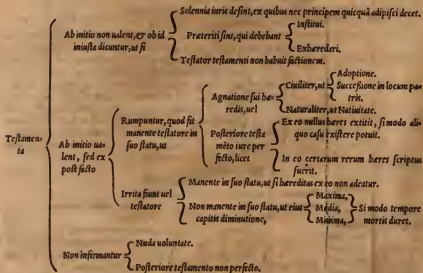 Solennia iuris desint, ex quibus nec principem quicquã adipisci decet.
Ab initio non ualent, & ob id
iniusta dicuntur, ut si
Præteriti sint, qui debebant
Institui.
Exhæredari.
Testator testamenti non habuit factionem.
Testamen-
ta
Ab initio ua-
lent, sed ex
post facto
Rumpuntur, quod fit
manente testatore in
suo statu, ut
Agnatione sui hæ-
redis, uel
Ciuiliter, ut
Adoptione.
Successione in locum pa-
tris.
Naturaliter, ut Natiuitate.
Posteriore testa
mẽto iure per
fecto, licet
Ex eo nullus hæres extitit, si modo ali
quo casu existere potuit.
In eo certarum rerum hæres scriptus
fuerit.
Irrita fiunt uel
testatore
Manente in suo statu, ut si hæreditas ex eo non adeatur.
Non manente in suo statu, ut eius
capitis diminutione,
Maxima,
Media,
Minima,
Si modo tempore
mortis duret.
Non infirmantur
Nuda uoluntate.
Posteriore testamento non perfecto.